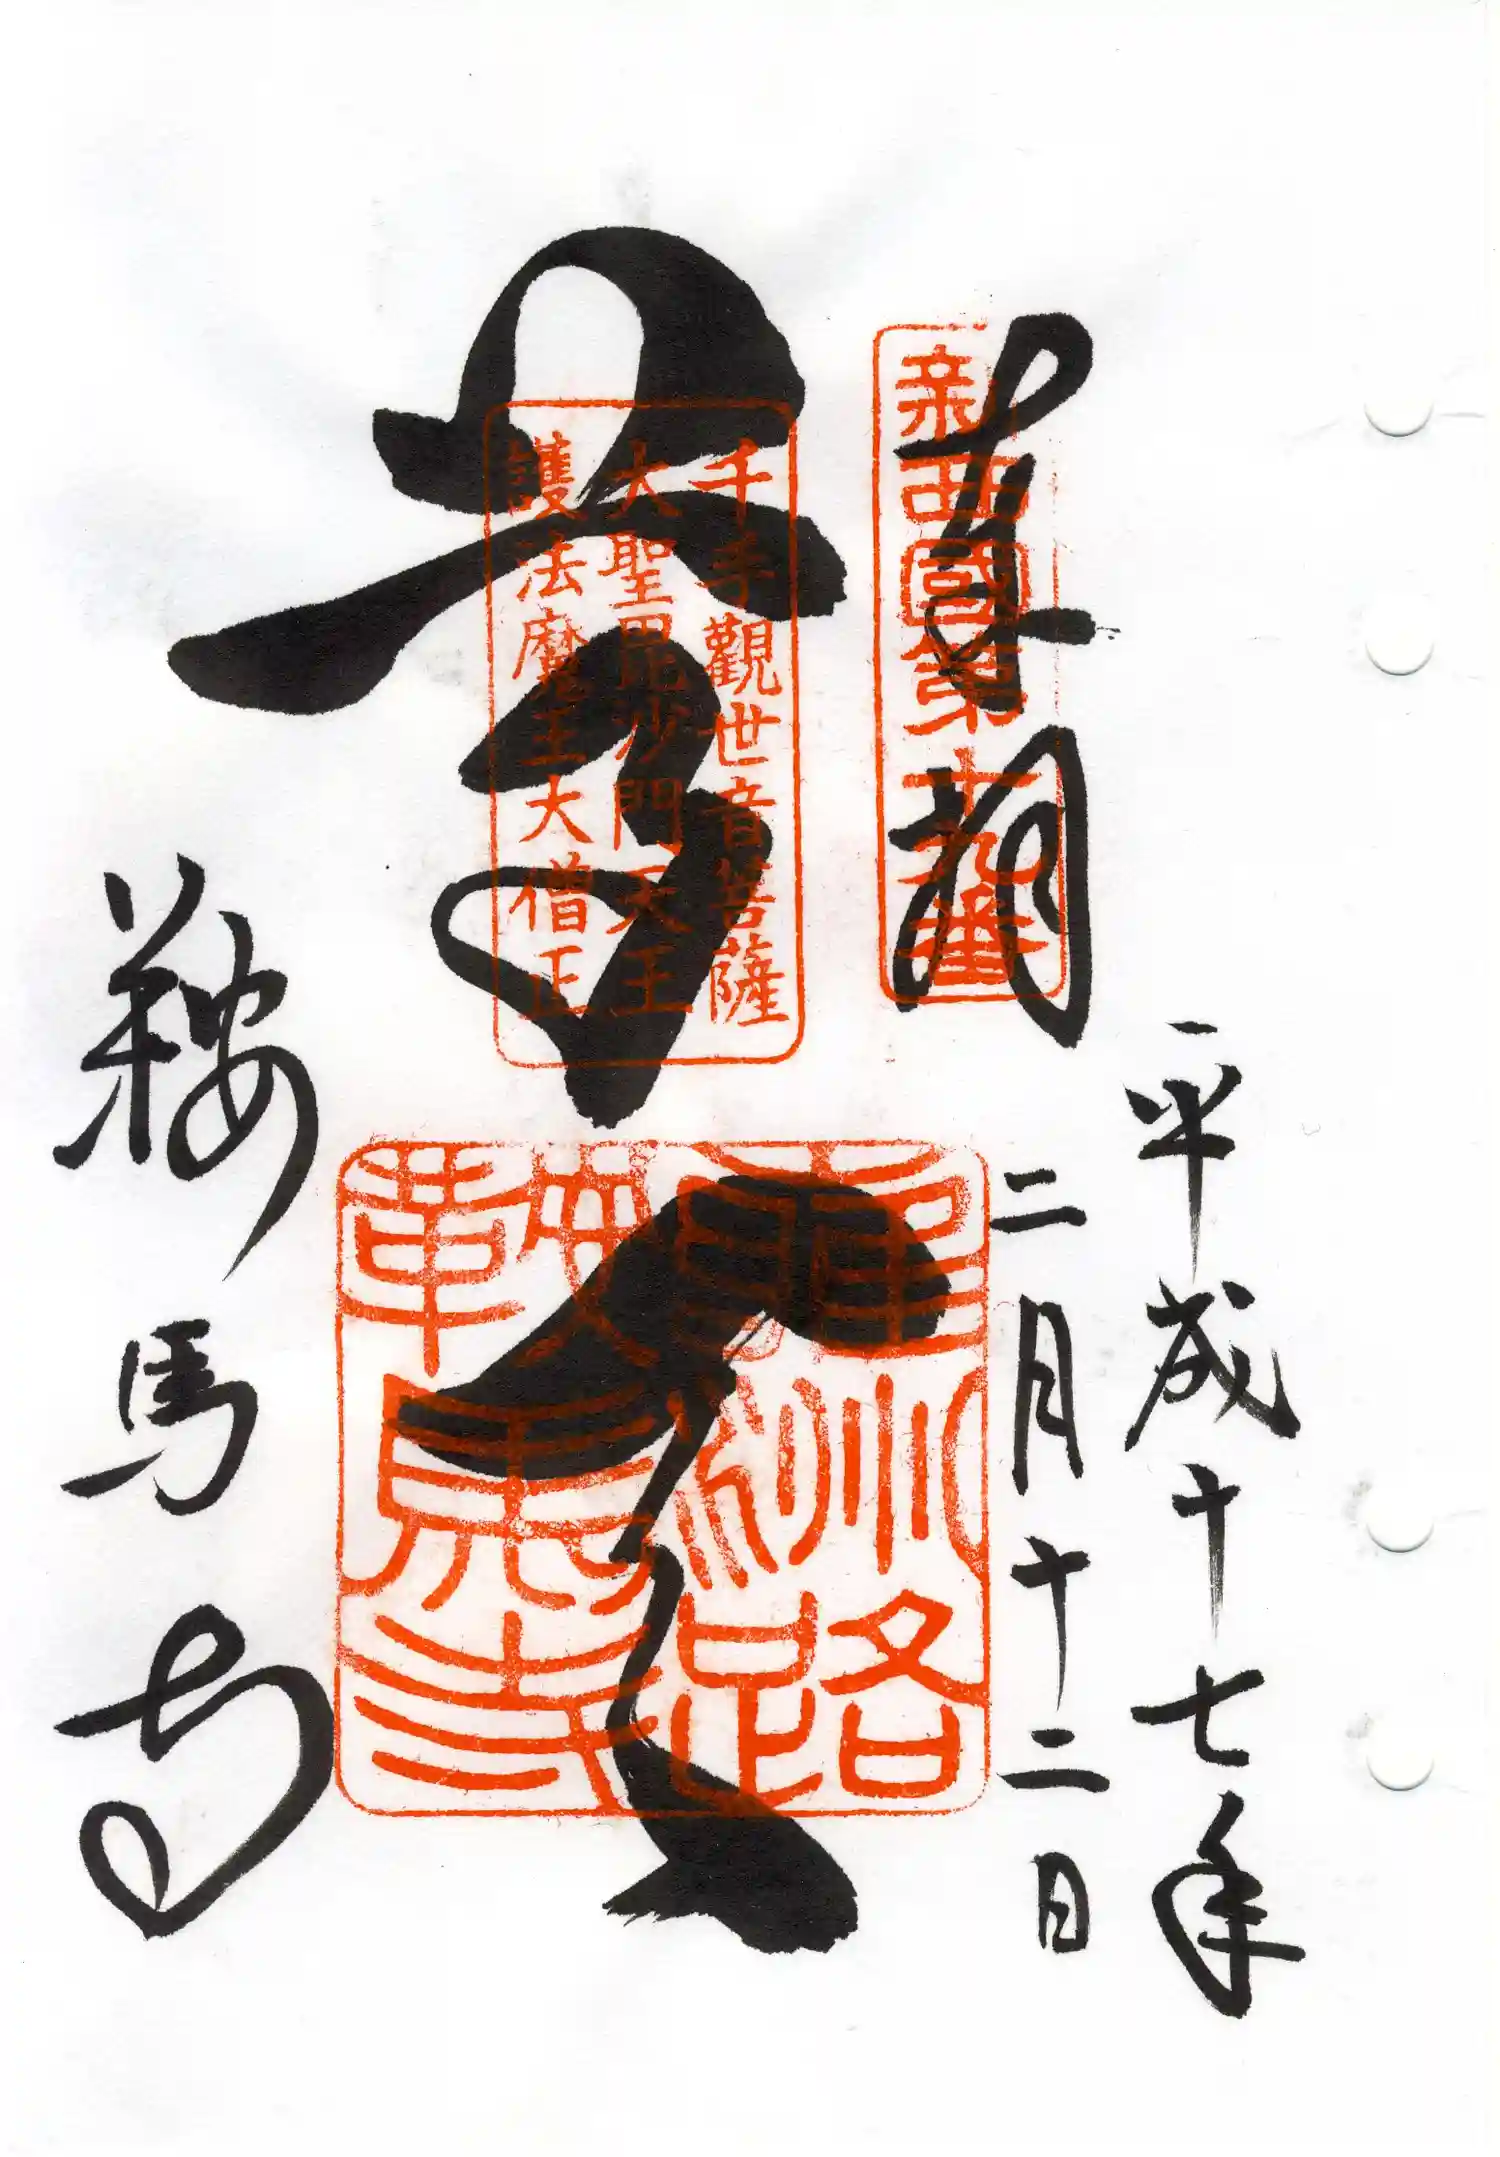 平成十七年
二月十二日
奉拝
新西國第十九番
尊天
千手觀世音菩薩
大聖毘沙門天王
護法魔王大僧正
鞍馬寺
鞍馬寺